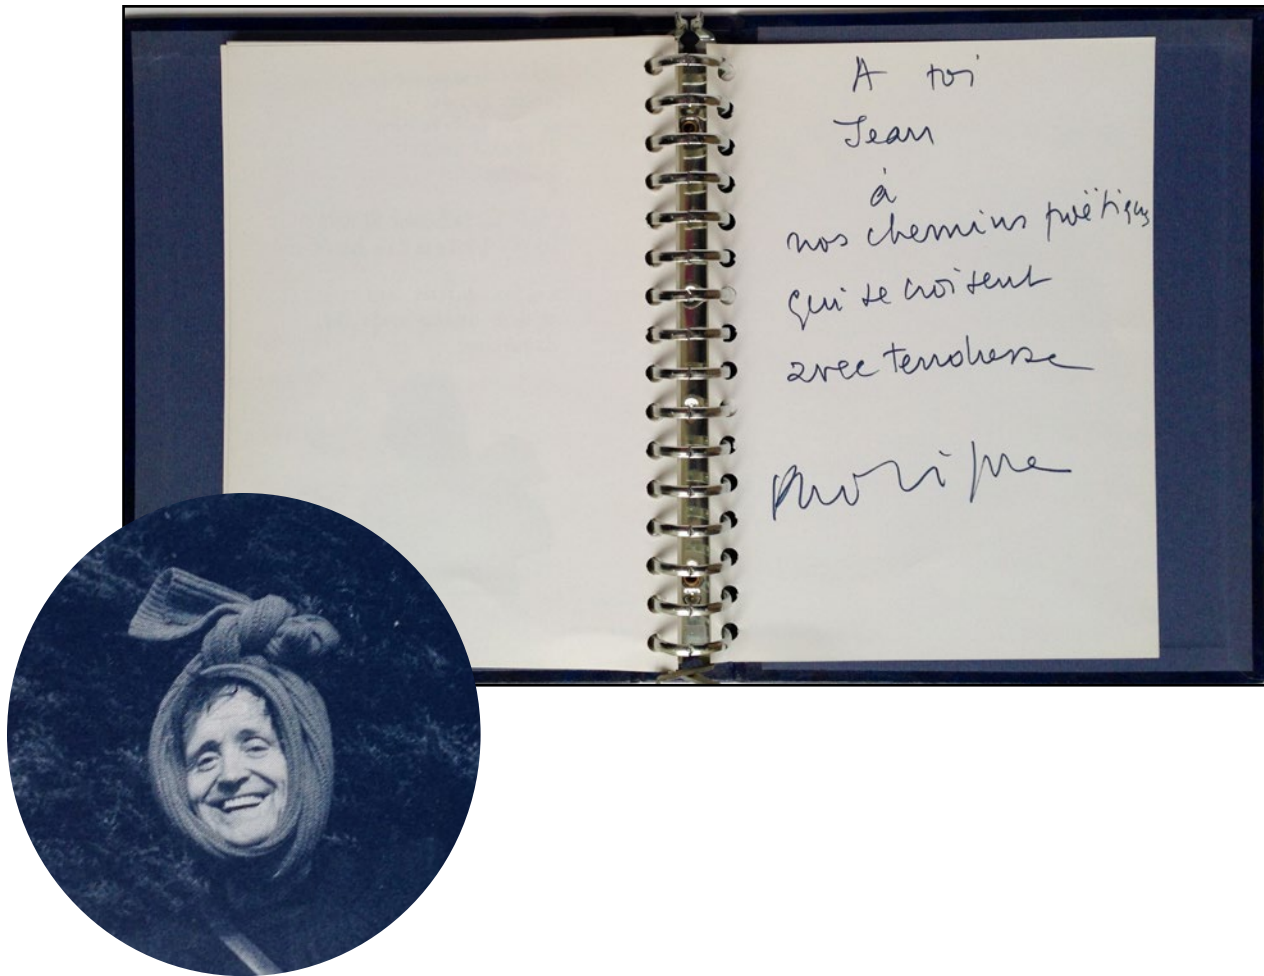 A toi
Jean
à
nos chemins poëtiques
qui se croisent
avec tendresse